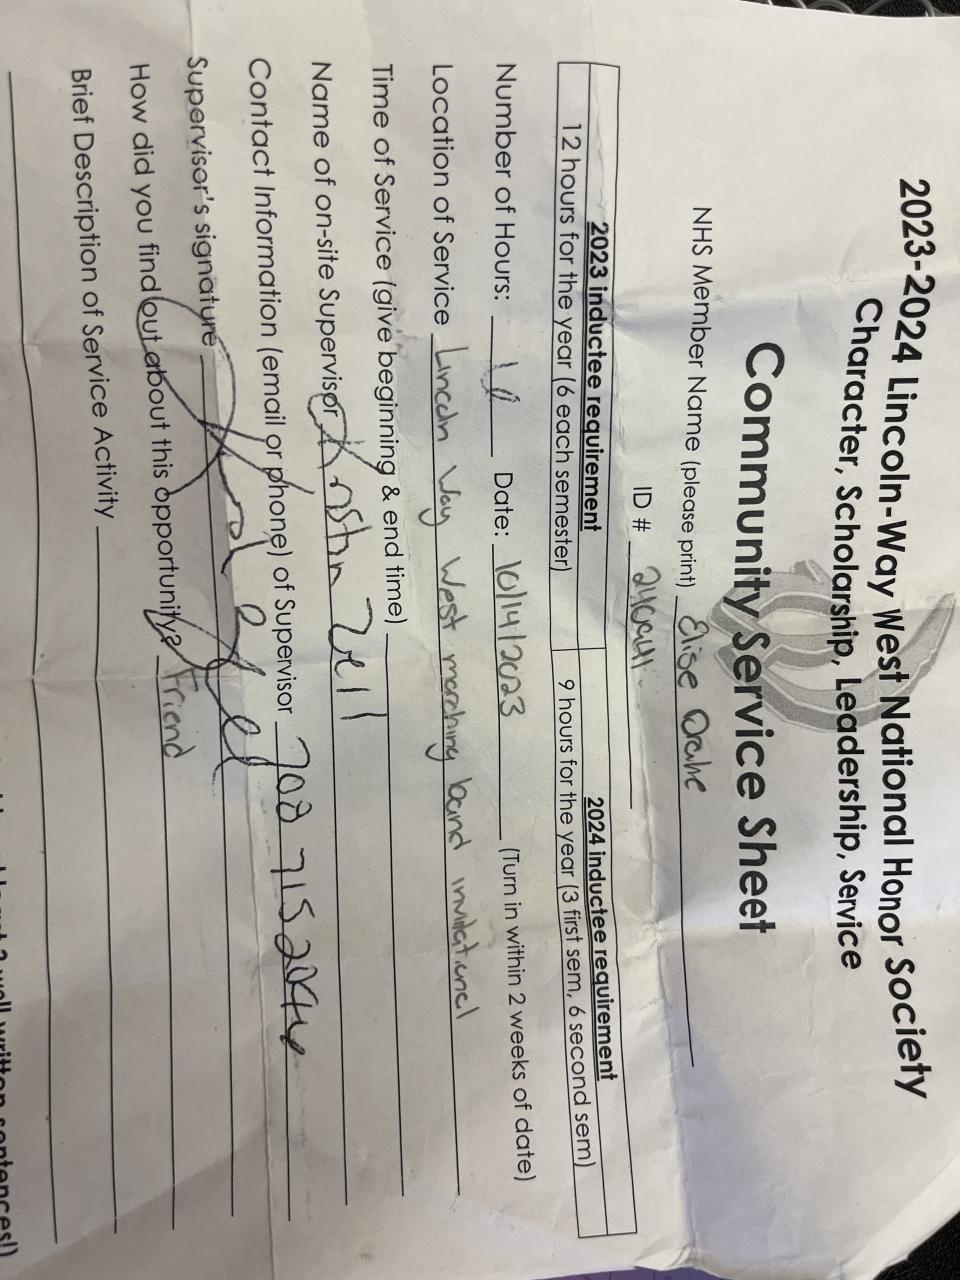 2023-2024 Lincoln-Way West National Honor Society
Character, Scholarship, Leadership, Service
Community Service Sheet
NHS Member Name (please print) Elise Drake
ID #
2023 inductee requirement 2024 inductee requirement
12 hours for the year (6 each semester) 9 hours for the year (3 first sem, 6 second sem)
Number of Hours: Date: 10/14/2023 (Turn in within 2 weeks of date)
Location of Service Lincoln Way West marching band invitational
Time of Service (give beginning & end time)
Name of on-site Supervisor
Contact Information (email or phone) of Supervisor 708 715
Supervisor's signature
How did you find out about this opportunity? Friend
Brief Description of Service Activity
well written sentences!)